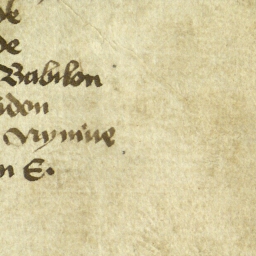 de
de
Babilon
idon
Nynive
n E.